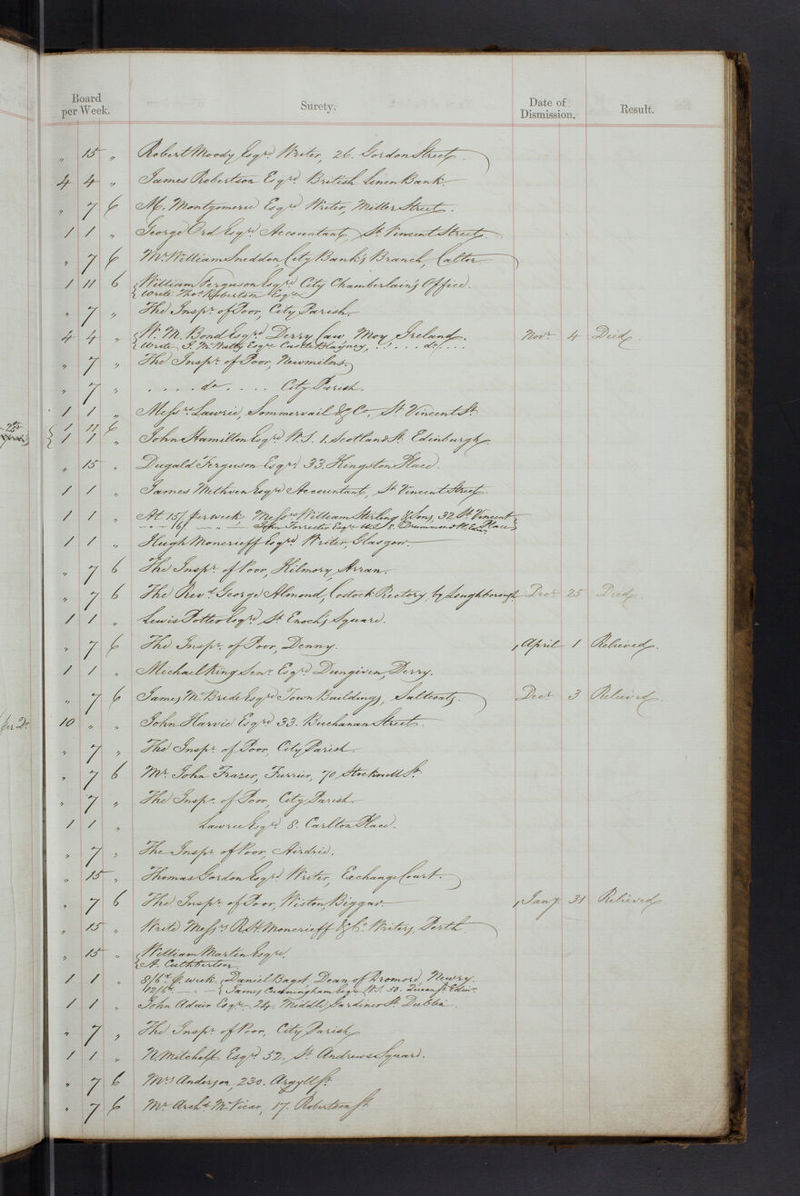 Board per Week. Surety. Date of Dismission. Result.
" 15 " Robert Moody Esqre. Writer, 26. Gordon Street.
4 4 " James Robertson Esqre. British Linen Bank.
" 7 6 M. Montgomerie Esqre Writer, Miller Street.
1 1 " George Ord Esqre Accountant, St Vincent Street
" 7 6 Mr William Sneddon City Bank's Branch,
1 11 6 William Ferguson Esqre City Chamberlain's Office.
Write Thos. Robertson Esqre
" 7 " The Inspr. of Poor, City Parish.
4 4 " W. M. Bond Esqre Derry Moy Ireland. Novr. 4 Died
Write J. Esqre Castle Blayney, . . . . do. . . .
" 7 " The Inspr. of Poor, Newmilns.
" 7 " . . . . do . . . . City Parish.
1 1 " Messrs. Lawrie, Sommervail & Co., St Vincent St.
1 11 6
1 1 " John Hamilton Esqre W.S. 1. Scotland St. Edinburgh
" 15 " Dugald Ferguson Esqre. 33. Kingston Place.
1 1 " James Methven Esqre Accountant, St Vincent Street
1 1 " At 15/ per week Messrs William Stirling & Sons, 32 St. Vincent Place
" " 16/ " " " John Forrester Esqre W.S. Drummond Pl. Edinr.
1 1 " Hugh Moncrieff Esqre. Writer, Glasgow.
" 7 6 The Inspr. of Poor, Kilmory, Arran.
" 7 6 The Revd. George Almond, Costock Rectory, by Loughborough Decr 25 Died.
1 1 " Lewis Potter Esqre. St Enoch's Square.
" 7 6 The Inspr. of Poor, Denny. April 1 Relieved.
1 1 " Michael King Senr. Esqre Dungiven, Derry.
" 7 6 James McBride Esqre Town Buildings, Saltcoats. Decr 3 Relieved
10 " " John Harvie Esqre 33. Buchanan Street.
" 7 " The Inspr. of Poor, City Parish.
" 7 6 Mr. John Frazer, Furrier, 70 Stockwell St.
" 7 " The Inspr. of Poor, City Parish.
1 1 " Lawrie Esqre. 8. Carlton Place.
" 7 " The Inspr. of Poor, Airdrie.
" 15 " Thomas Gordon Esqre Writer, Exchange Court.
" 7 6 The Inspr. of Poor, Wiston, Biggar. Jany 31 Relieved
" 15 " Write Messrs R & H Moncrieff & Co. Writers, Perth
" 15 " William Martin Esqre.
A. Cuthbertson
1 1 " 8/6d. p. week Daniel Bagot, Dean of Dromore, Newry
12/6d. " " James Cunningham Esqre W.S. 50. Queen St. Edinr
1 1 " John Adair Esqre. 24. Middle Gardiner St. Dublin
" 7 " The Inspr. of Poor, City Parish
1 1 " N. Mitchell Esqre 52. St Andrews Square.
" 7 6 Mrs Anderson, 230. Argyll St.
" 7 6 Mr. Archd. McVicar, 17. Robertson St.